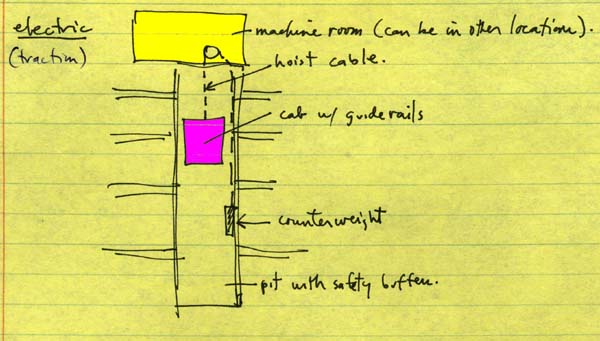 electric
(traction)
machine room (can be in other locations).
hoist cable.
cab w/ guiderails
counterweight
pit with safety buffers.